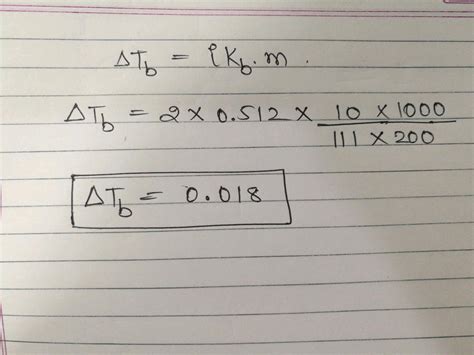 ΔT_b = i K_b . m .
ΔT_b = 2 × 0.512 × 10 × 1000 / 111 × 200
ΔT_b = 0.018